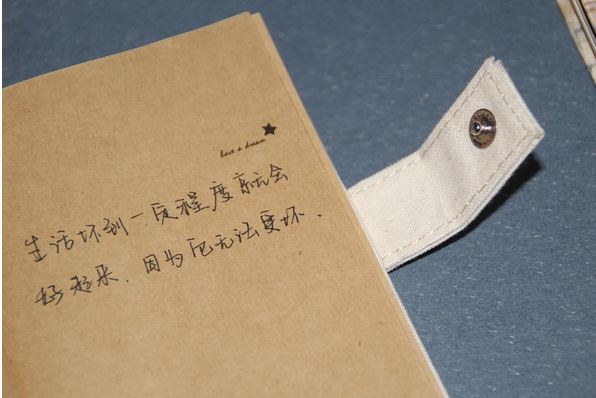 have a dream
生活坏到一定程度就会
好起来．因为它无法更坏．